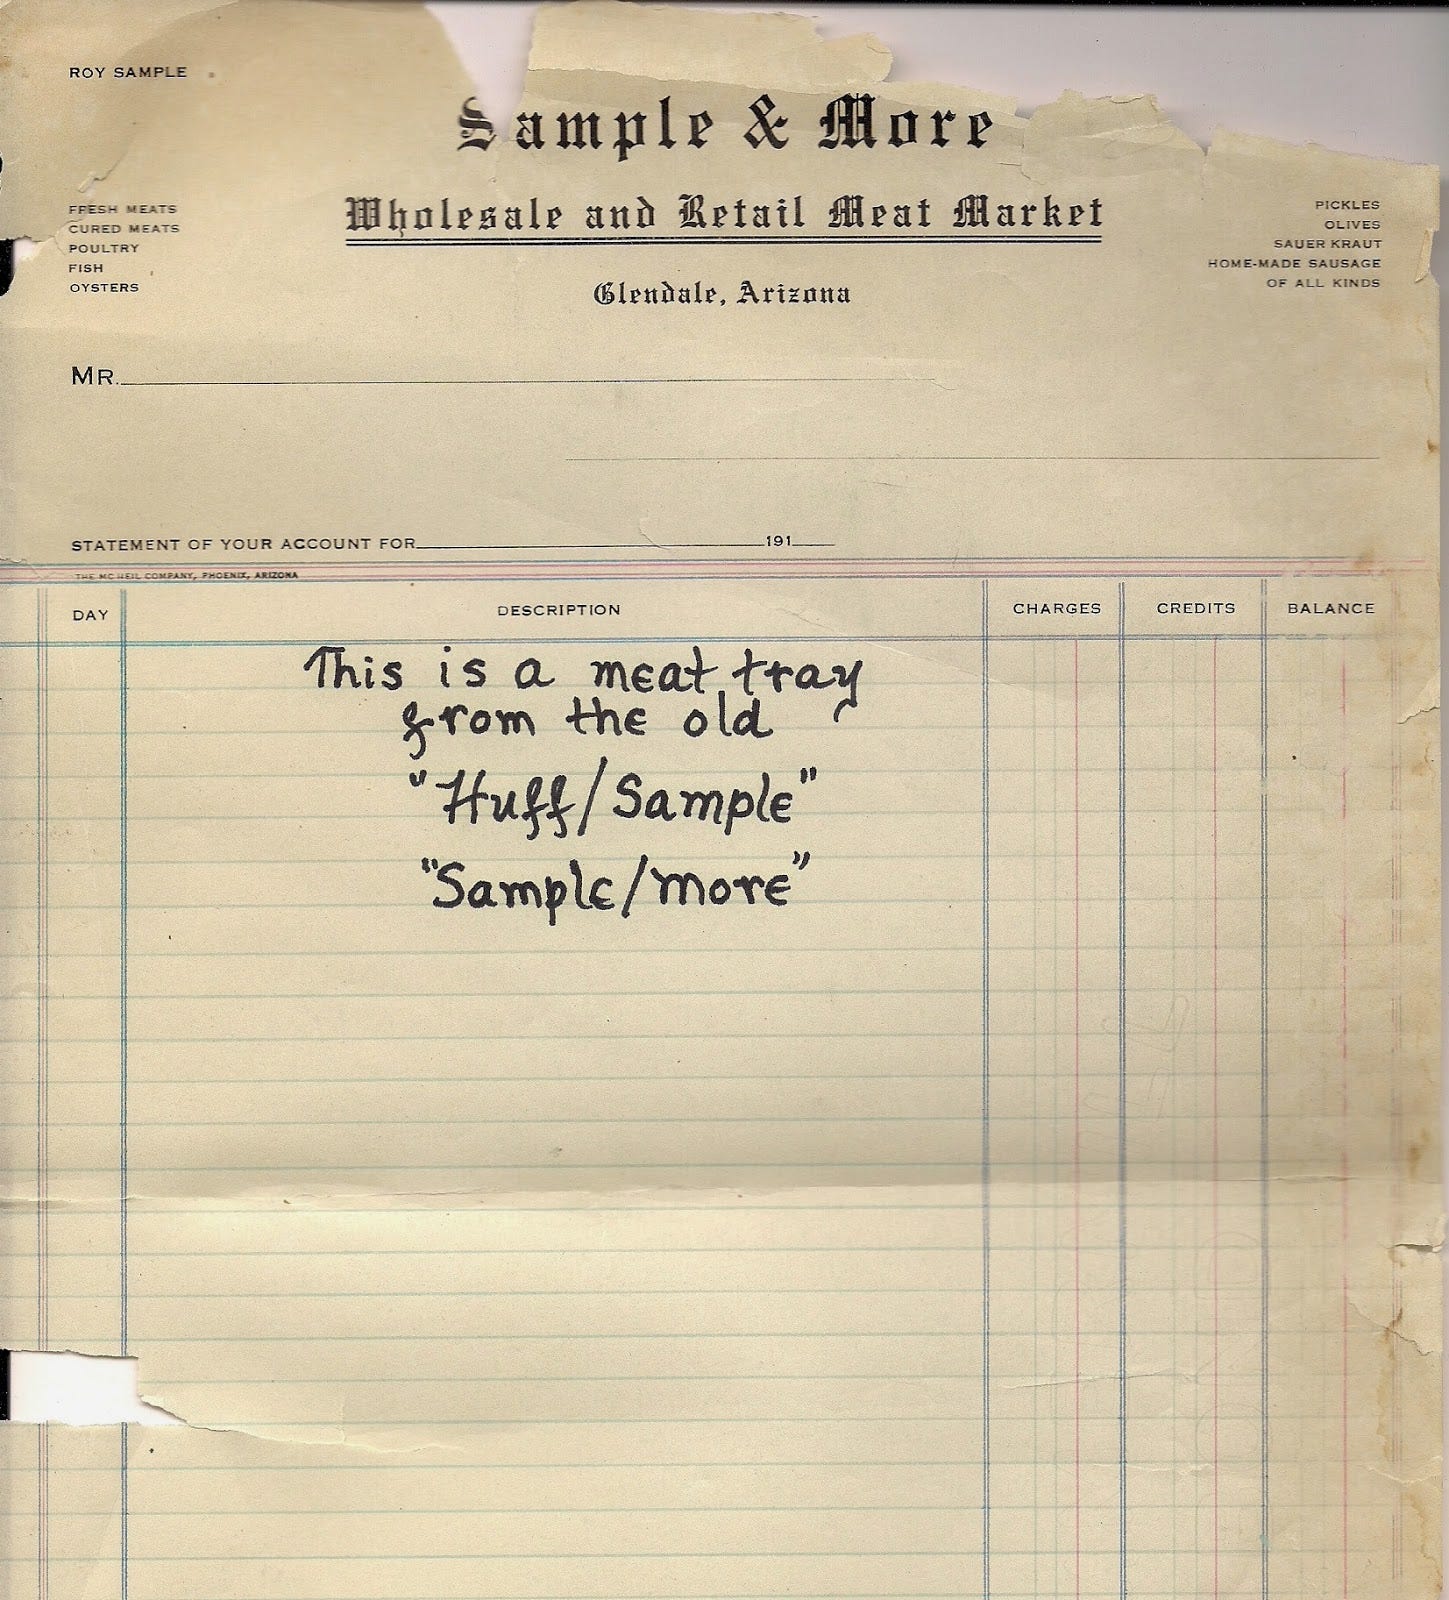 ROY SAMPLE
Sample & More
Wholesale and Retail Meat Market
Glendale, Arizona
FRESH MEATS
CURED MEATS
POULTRY
FISH
OYSTERS
PICKLES
OLIVES
SAUER KRAUT
HOME-MADE SAUSAGE
OF ALL KINDS
MR.
STATEMENT OF YOUR ACCOUNT FOR 191
THE MC NEIL COMPANY, PHOENIX, ARIZONA
DAY DESCRIPTION CHARGES CREDITS BALANCE
This is a meat tray
from the old
"Huff/Sample"
"Sample/More"